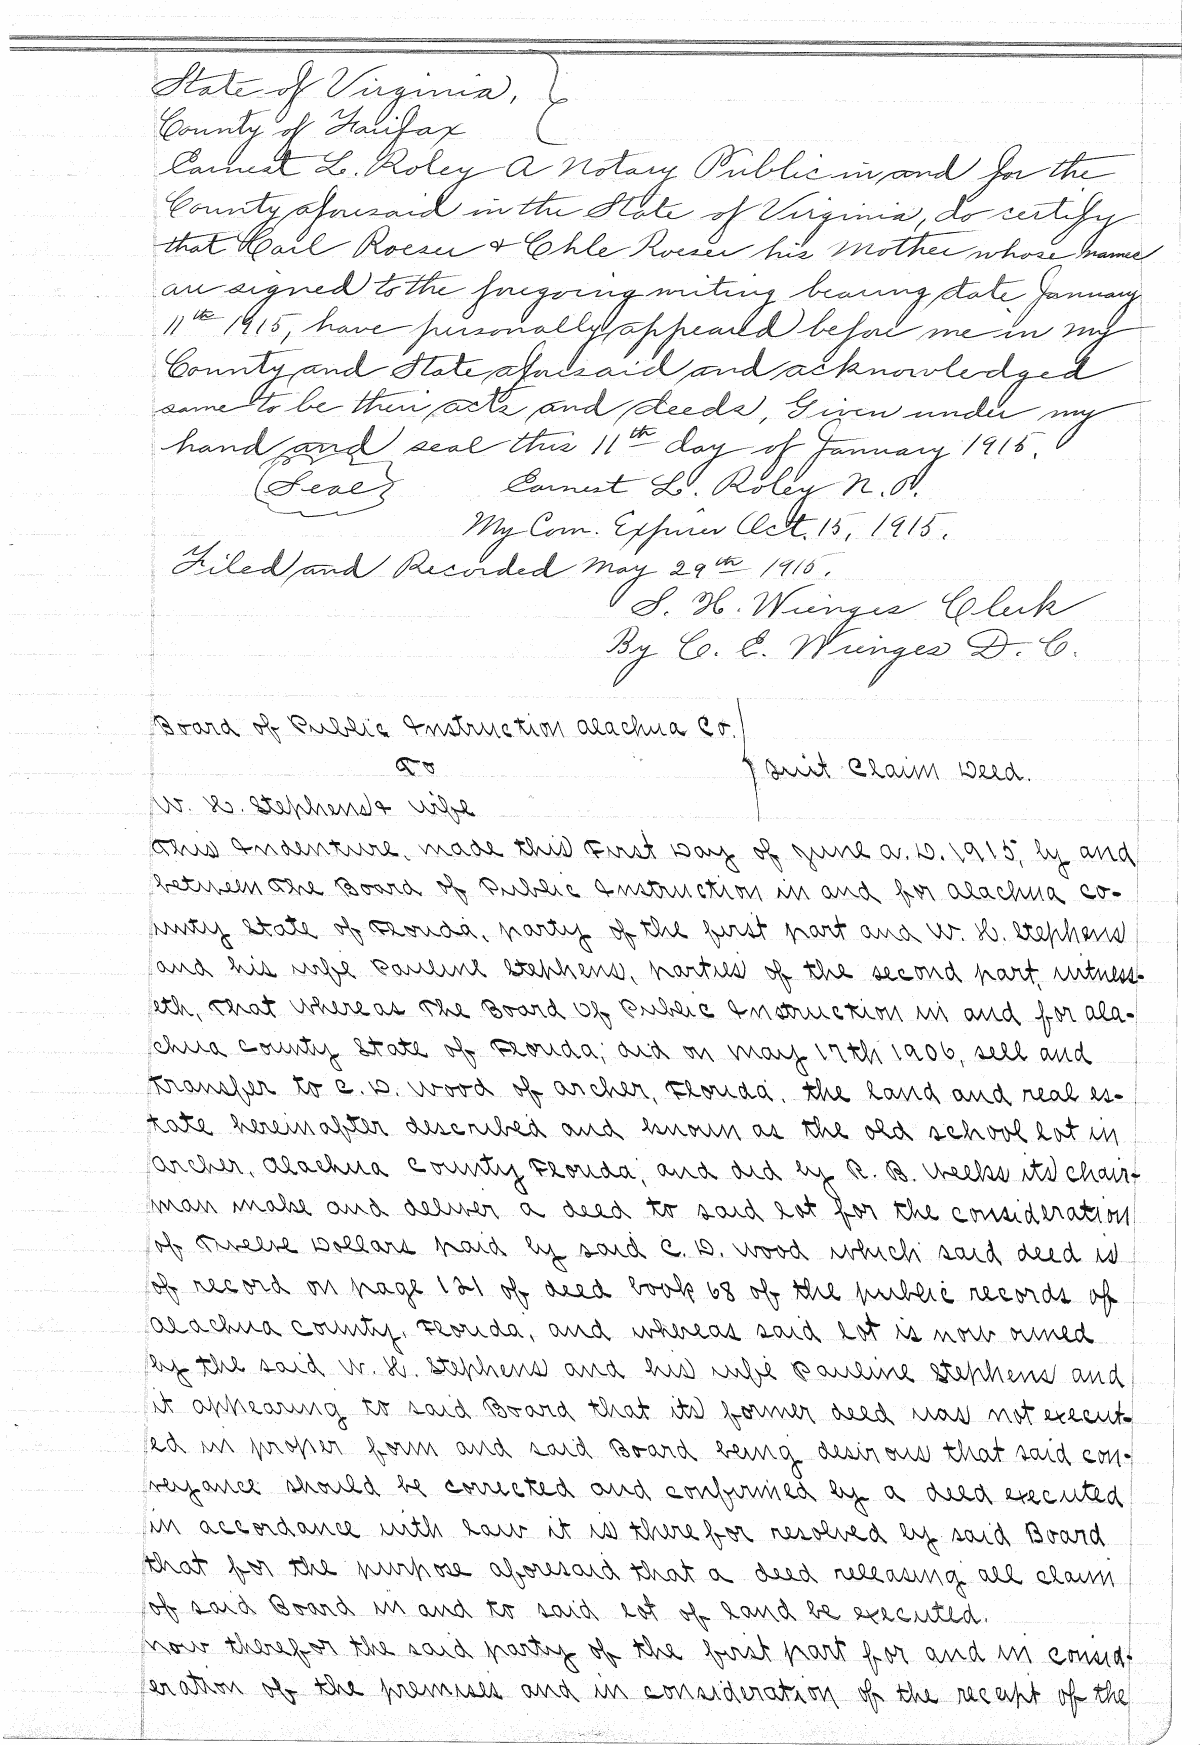 State of Virginia,
County of Fairfax
Earnest L. Roley A Notary Public in and for the
County aforesaid in the State of Virginia, do certify
that Carl Roeser & Chle Roeser his Mother whose names
are signed to the foregoing writing bearing date January
11th 1915, have personally appeared before me in my
County and State aforesaid and acknowledged
same to be their acts and deeds, Given under my
hand and seal this 11th day of January 1915.
(Seal) Earnest L. Roley N.P.
My Com. Expires Oct. 15, 1915.
Filed and Recorded May 29th 1915.
S. H. Wienges Clerk
By C. E. Wienges D.C.
Board of Public Instruction Alachua Co.
To
Quit Claim Deed.
W. H. Stephens & wife
This Indenture, made this First Day of June A.D. 1915, by and
between The Board of Public Instruction in and for Alachua Co-
unty State of Florida, party of the first part and W. H. Stephens
and his wife Pauline Stephens, parties of the second part, witness-
eth, That Whereas The Board Of Public Instruction in and for Ala-
chua County State of Florida, did on May 17th 1906, sell and
transfer to C. D. Wood of Archer, Florida, the land and real es-
tate hereinafter described and known as the old school lot in
Archer, Alachua County Florida, and did by R. B. Weeks its chair-
man make and deliver a deed to said lot for the consideration
of Twelve Dollars paid by said C. D. Wood which said deed is
of record on page 121 of deed book 68 of the public records of
Alachua County, Florida, and whereas said lot is now owned
by the said W. H. Stephens and his wife Pauline Stephens and
it appearing to said Board that its former deed was not execut-
ed in proper form and said Board being desirous that said con-
veyance should be corrected and confirmed by a deed executed
in accordance with law it is therefor resolved by said Board
that for the purpose aforesaid that a deed releasing all claim
of said Board in and to said lot of land be executed.
Now therefor the said party of the first part for and in consid-
eration of the premises and in consideration of the receipt of the